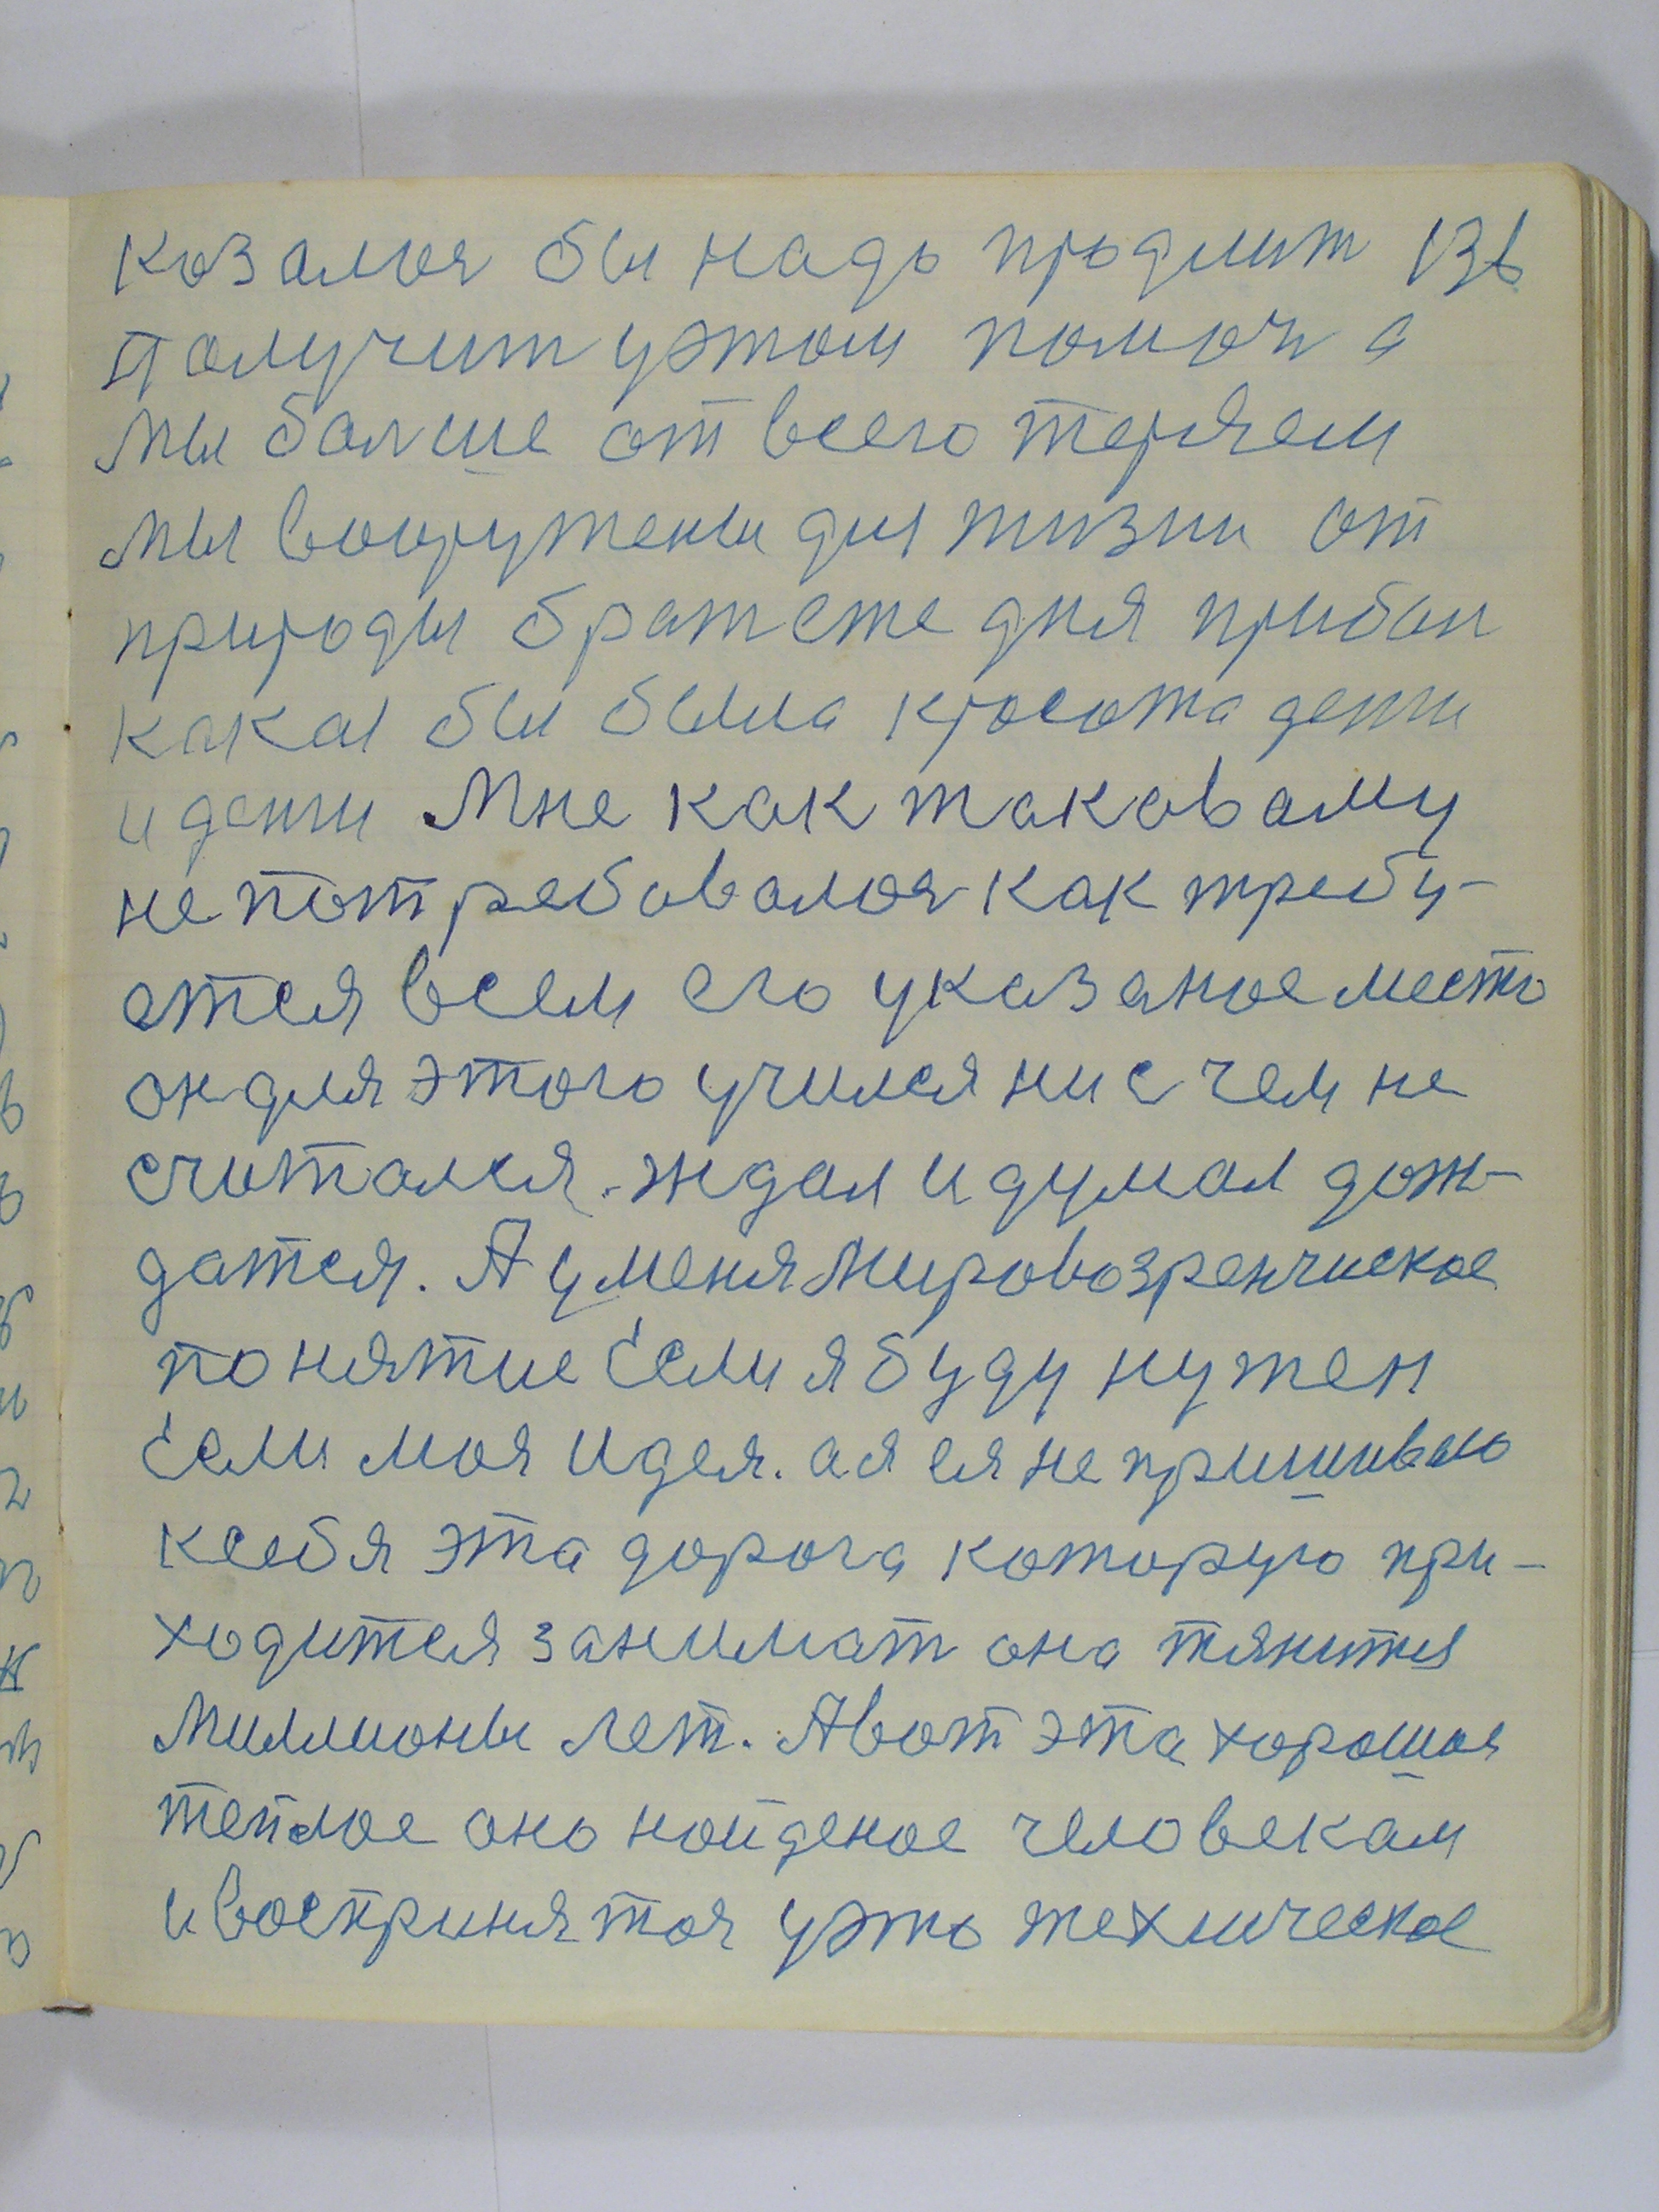 козалося бы надо продлит 136
получит уэтом помоч а
мы болше от всего теряем
мы вооружены для жизни от
природы брат сте дня прибои
какая бы была красота денги
и денги Мне как таковаму
не потребовалося как требу-
ется всем его указаное место
он для этого учился ни с чем не
считался. ждал и думал дож-
датся. А у меня Мировозренчиское
понятие Если я буду нужен
Если моя идея. а я ея не пришиваю
ксебя эта дорога которую при-
ходится занимат она тянится
Миллионы лет. А вот эта хорошоя
теплое оно нойденое человекам
и воспринятоя уэто техническое